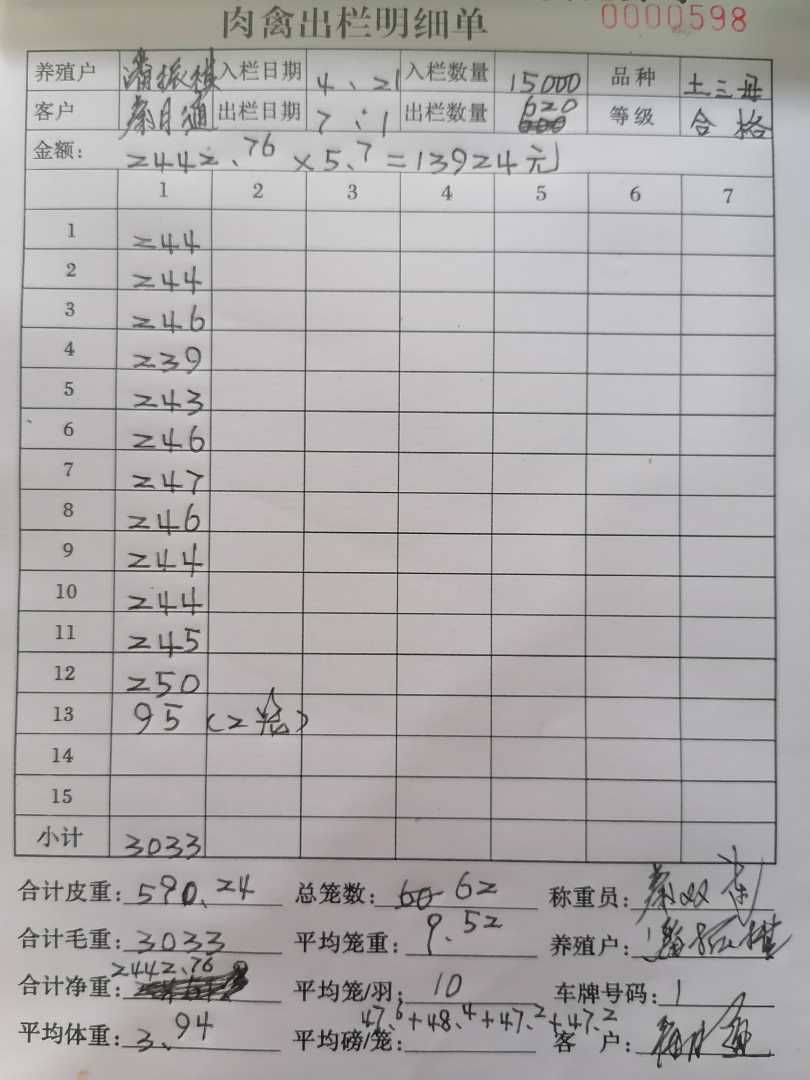 肉禽出栏明细单 0000598
养殖户 潘振棋 入栏日期 4、21 入栏数量 15000 品种 土三母
客户 秦月通 出栏日期 7:1 出栏数量 620 等级 合格
金额: 2442.76×5.7=13924元
1 2 3 4 5 6 7
1 244
2 244
3 246
4 239
5 243
6 246
7 247
8 246
9 244
10 244
11 245
12 250
13 95 (2笼)
14
15
小计 3033
合计皮重: 590.24 总笼数: 60 62 称重员: 秦双
合计毛重: 3033 平均笼重: 9.52 养殖户: 潘振棋
合计净重: 2442.76 平均笼/羽: 10 车牌号码: 1
平均体重: 3.94 平均磅/笼: 47.6+48.4+47.2+47.2 客户: 秦月通